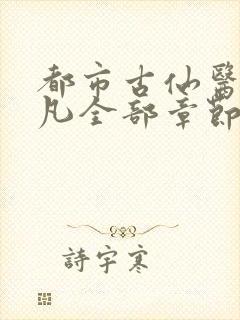 都市古仙醫
凡全部章節
詩宇寒